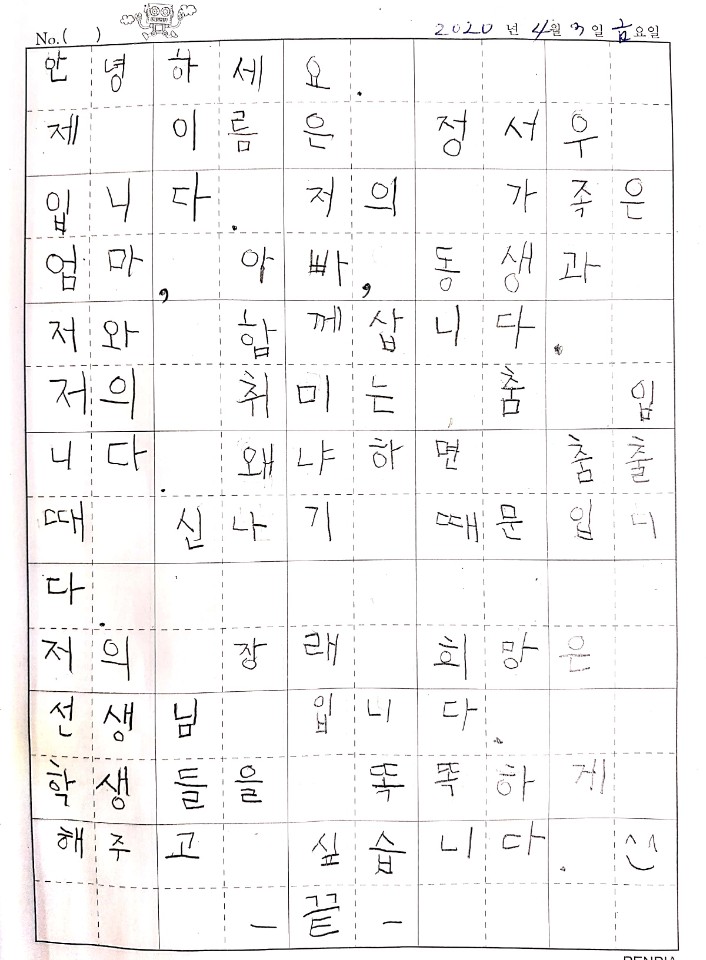 No.( ) 2020 년 4월 3일 금요일
안녕하세요.
제 이름은 정서우
입니다. 저의 가족은
엄마, 아빠, 동생과
저와 함께 삽니다.
저의 취미는 춤 입
니다. 왜냐하면 춤출
때 신나기 때문입니
다.
저의 장래 희망은
선생님 입니다.
학생들을 똑똑하게
해주고 싶습니다.
-끝-